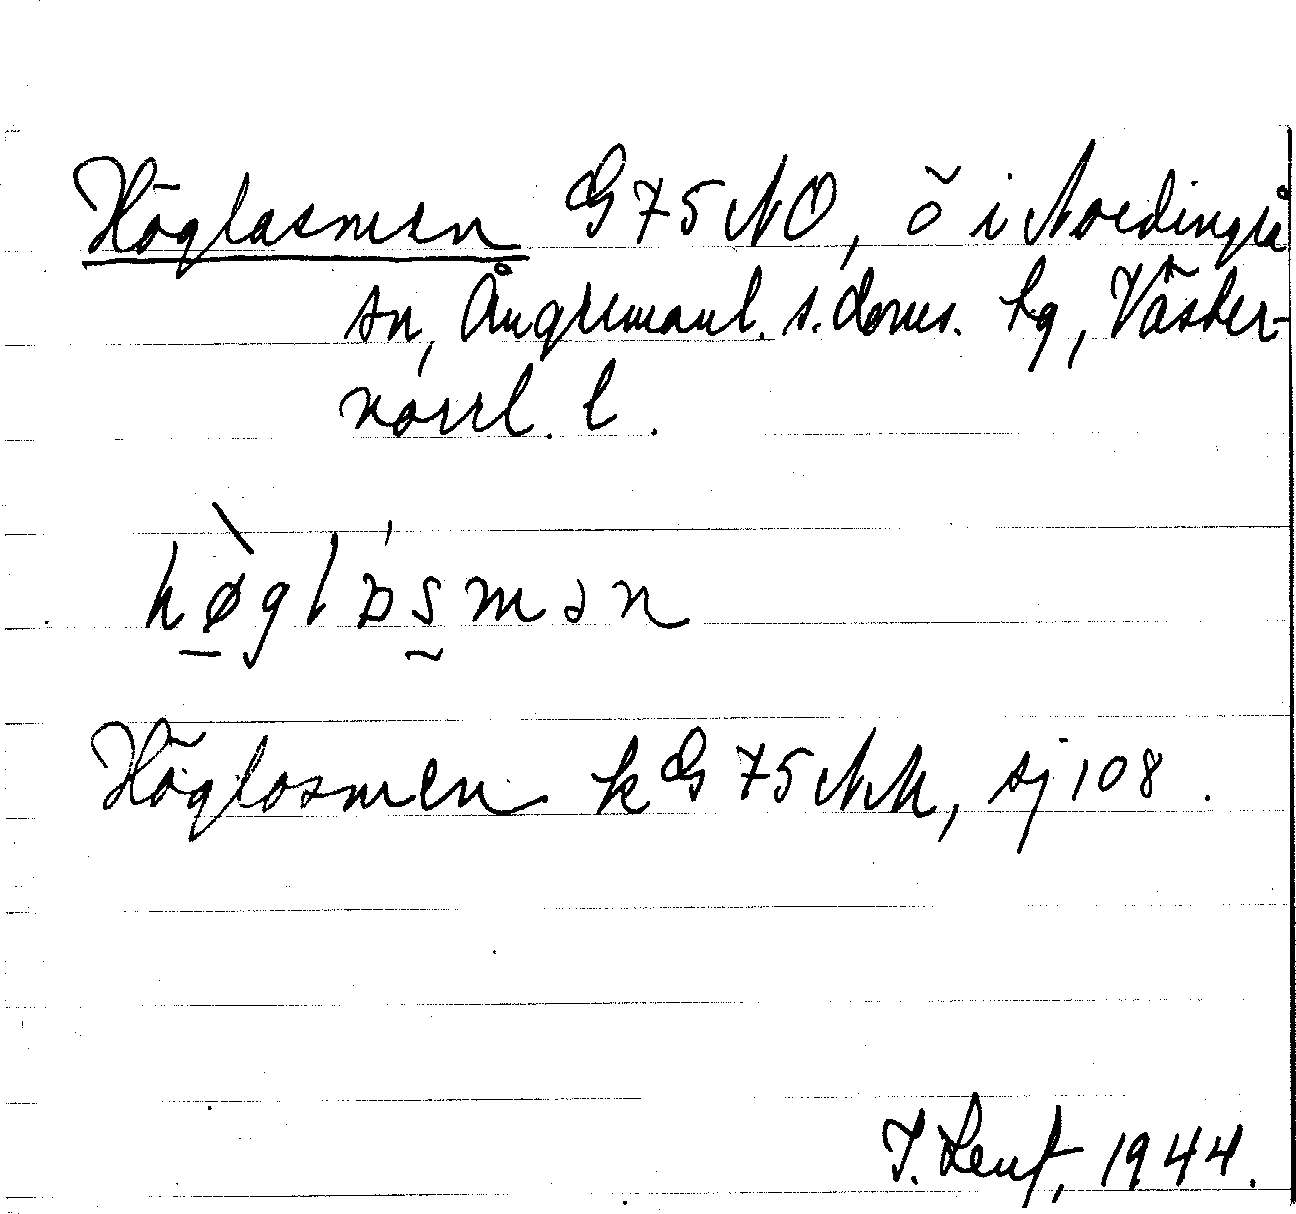 Höglosmen G 75 NO, ö i Nordingrå
sn, Ångermanl. s. doms. tg, Väster-
norrl. l.
Höglosmen k G 75 NM, sj 108.
1944.